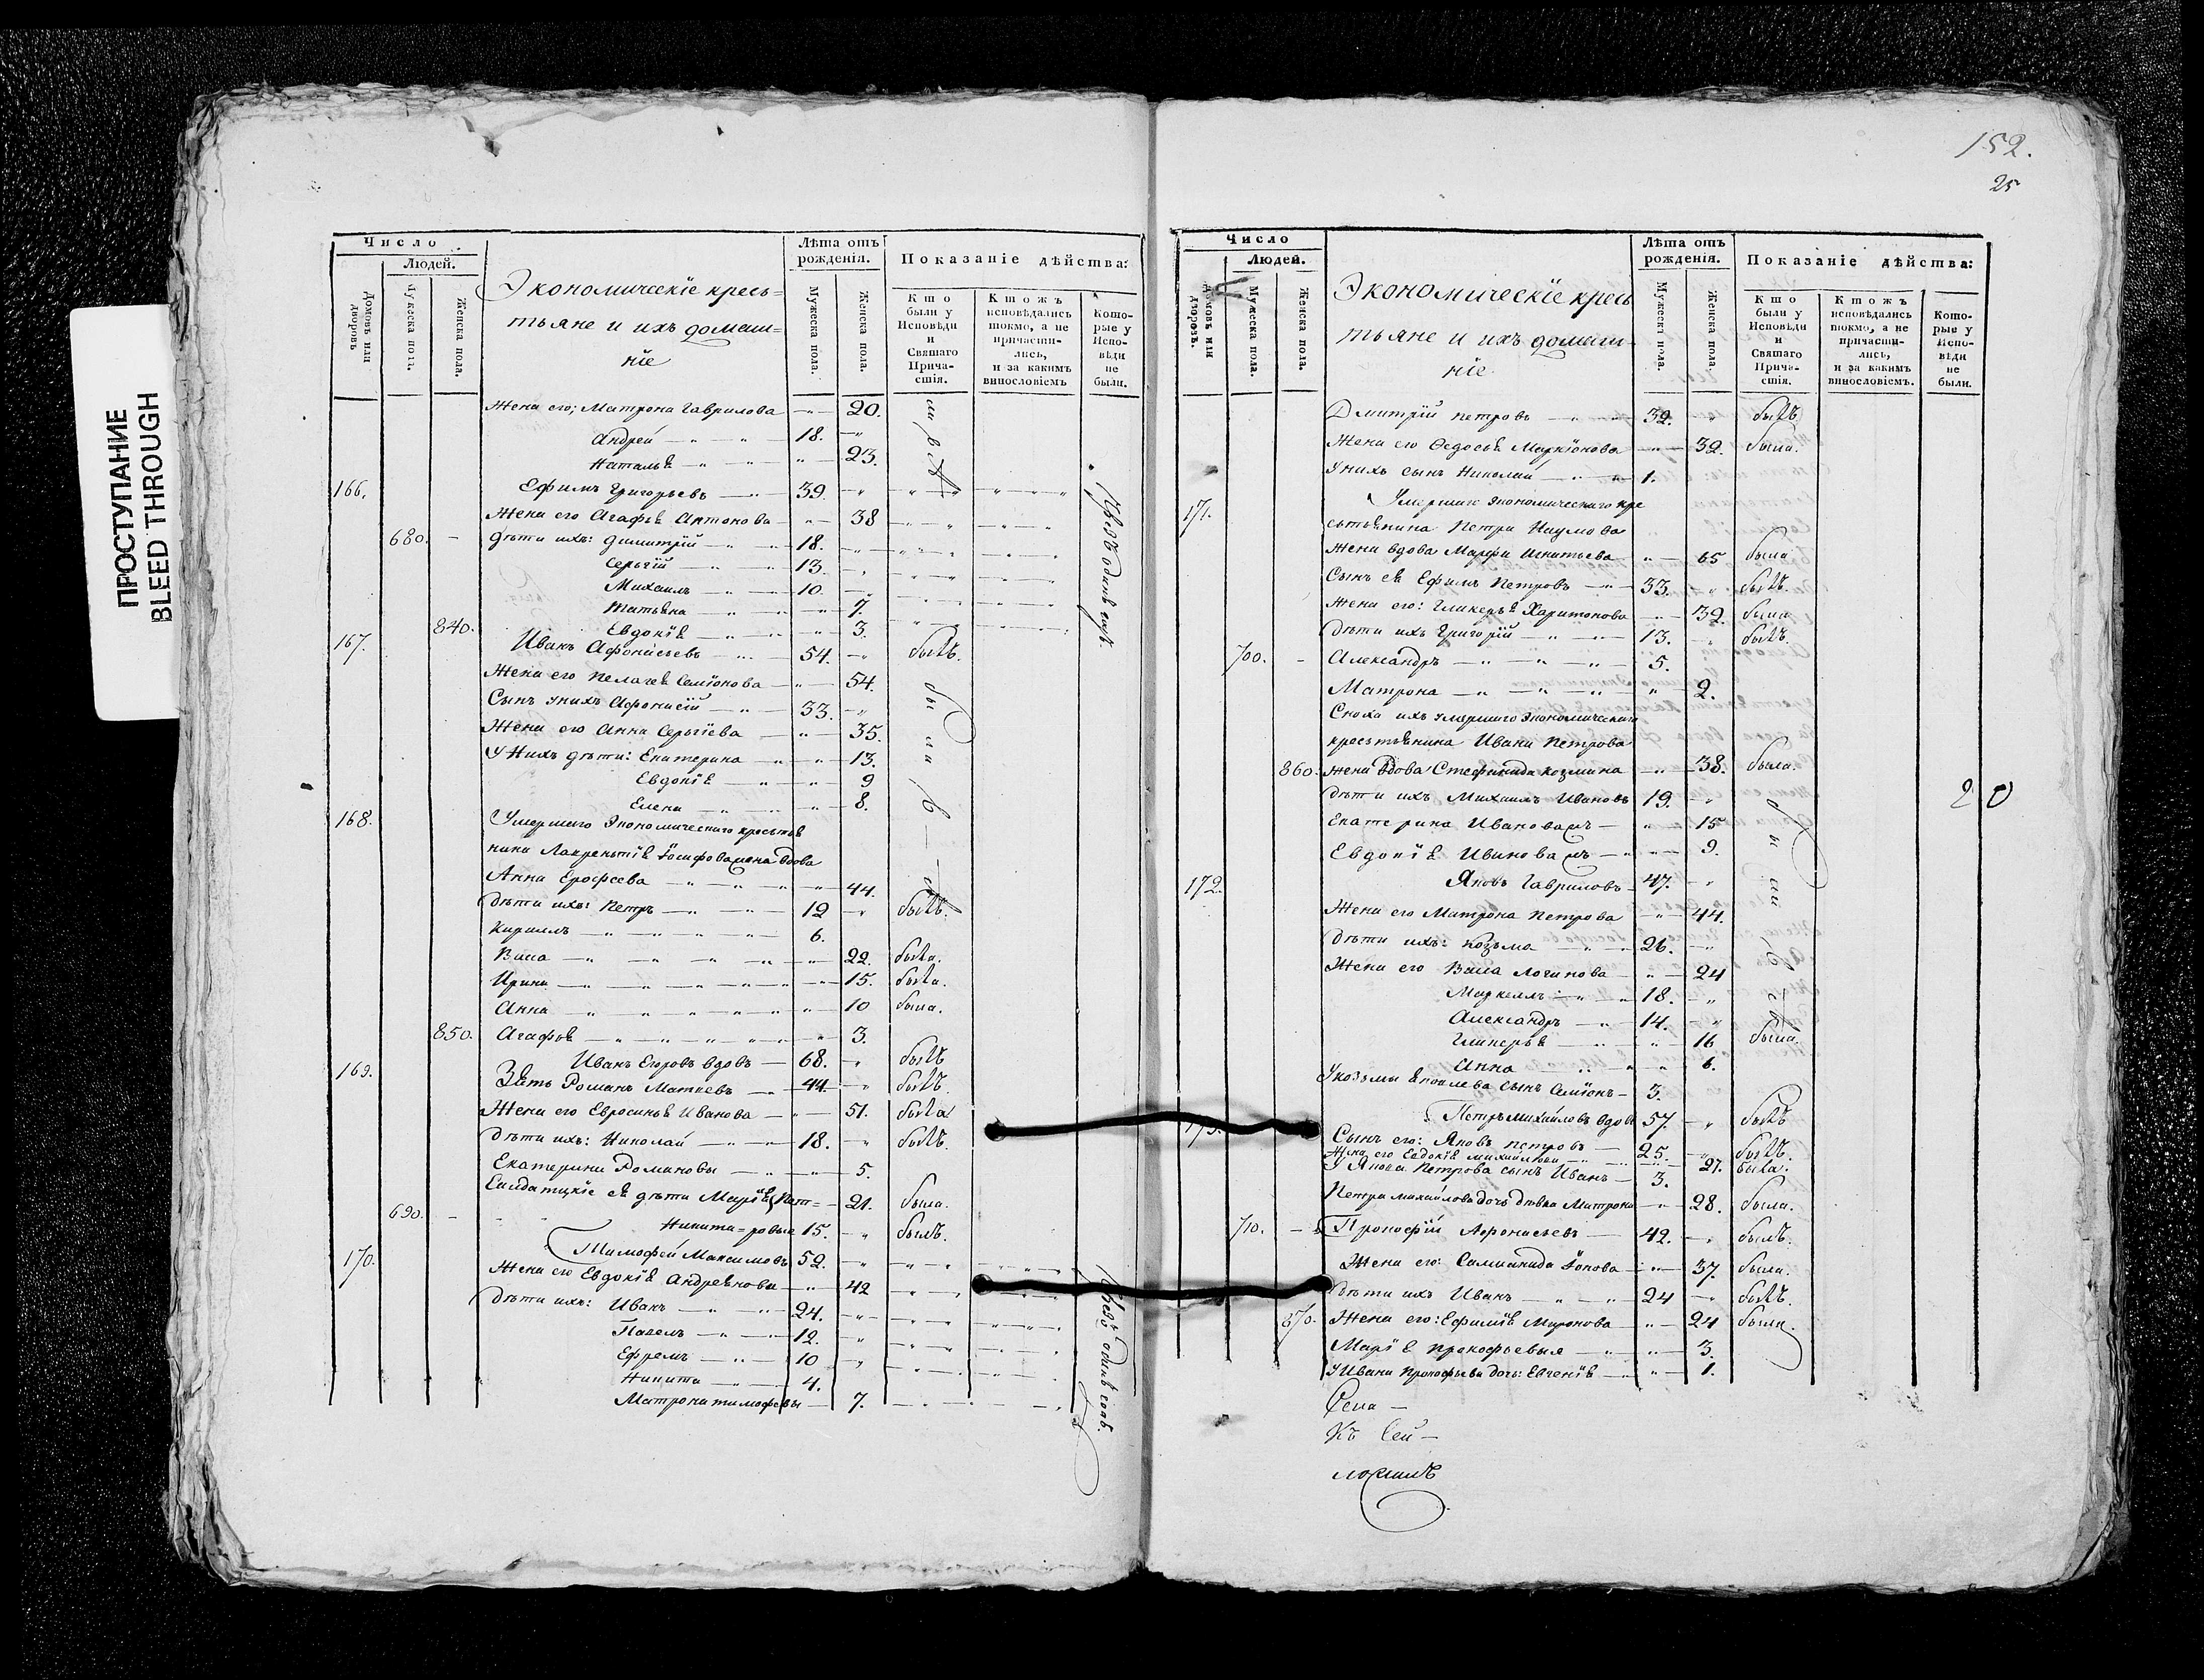 ПРОСТУПАНИЕ
BLEED THROUGH
Число
Людей.
Домовъ или дворовъ
Мужеска пола.
Женска пола.
Экономическіе кресь=
тьяне и ихъ домаш=
ніе
Лѣта отъ рожденія.
Мужеска пола.
Женска пола.
Показаніе дѣйства:
Кто были у Исповѣди и Святаго Прича-стія.
Ктожъ исповѣдались токмо, а не причасти-лись, и за какимъ винословіемъ
Кото-рые у Испо-вѣди не были.
Жена его; Матрона Гаврилова — 20.
Андрей — 18.
Наталья — 23.
166. Ефимъ Григорьевъ — 39.
Жена его Агафья Антонова — 38
680. Дѣти ихъ: Димитрій — 18.
Сергій — 13.
Михаилъ — 10.
Татьяна — 7.
840. Евдокія — 3.
167. Иванъ Афонасьевъ — 54. былъ.
Жена его Пелагея Семіонова — 54.
Сынъ унихъ Афонасій — 33.
Жена его Анна Сергіева — 35.
У Нихъ дѣти: Екатерина — 13.
Евдокія — 9
Елена — 8.
168. Умершаго Экономическаго кресьтья
нина Лаврентія Іосифова жена вдова
Анна Ерофеева — 44.
Дѣти ихъ: Петръ — 12 былъ.
Кириллъ — 6.
Васа — 22. была.
Ирина — 15. была.
Анна — 10 была.
850. Агафья — 3.
169. Иванъ Егоровъ вдовъ — 68. былъ
Зять Романъ Матвеевъ — 44. былъ
Жена его Евросинья Иванова — 51. была
Дѣти ихъ: Николай — 18. былъ.
Екатерина Романовы — 5.
Салдатцкіе ея дѣти Марія Пет= 21. была.
690. Никита =ровые 15. былъ.
170. Тимофей Максимовъ 52.
Жена его Евдокія Андреянова — 42
Дѣти ихъ: Иванъ — 24.
Павелъ — 12.
Ефремъ — 10
Никита — 4.
Матрона тимофевы — 7.
152.
25
Число
Людей.
Домовъ или дворовъ.
Мужеска пола.
Женска пола.
Экономическіе кресь
тьяне и ихъ домаш
ніе
Лѣта отъ рожденія.
Мужеска пола.
Женска пола.
Показаніе дѣйства:
Кто были у Исповѣди и Святаго Прича-стія.
Ктожъ исповѣдались токмо, а не причасти-лись, и за какимъ винословіемъ.
Кото-рые у Испо-вѣди не были.
Дмитрій Петровъ — 32. былъ
Жена его Ѳедосья Маркіонова — 32. была.
Унихъ сынъ Николай — 1.
171. Умершаго экономическаго кре
сьтьянина Петра Наумова
Жена вдова Марфа Игнатьева — 65 была
Сынъ ея Ефимъ Петровъ — 33. былъ.
Жена его: Гликерья Харитонова — 32. была
Дѣти ихъ Григорій — 13. былъ.
700. Александръ — 5.
Матрона — 2.
Сноха ихъ умершаго экономическаго
кресьтьянина Ивана Петрова
860. жена вдова Стефанида Козмина — 38. была.
Дѣти ихъ Михаилъ Ивановъ 19.
Екатерина Ивановачъ — 15
Евдокія Ивановачъ — 9.
172. Яковъ Гавриловъ — 47.
Жена его Матрона Петрова — 44.
Дѣти ихъ: Козьма — 26.
Жена его Васа Логинова — 24
Маркеллъ — 18.
Александръ — 14.
Гликерья — 16 была.
Анна — 6.
Укозьмы яковлева сынъ Семіонъ — 3.
173. Петръ михайловъ вдовъ 57. былъ
Сынъ его: Яковъ петровъ — 25. былъ.
Жена его Евдокія михайлова — 27. была.
У Якова Петрова сынъ Иванъ — 3.
Петра михайлова дочь дѣвка Матрона — 28. была.
710. Прокофій Афонасьевъ — 42. былъ.
Жена его: Саломонида Іонова — 37. была.
Дѣти ихъ Иванъ — 24 былъ.
870. Жена его: Ефимія Миронова — 24 была.
Марія прокофьевыя — 3.
У Ивана Прокофьева дочь: Евгенія — 1.
20
Села —
Къ Сей —